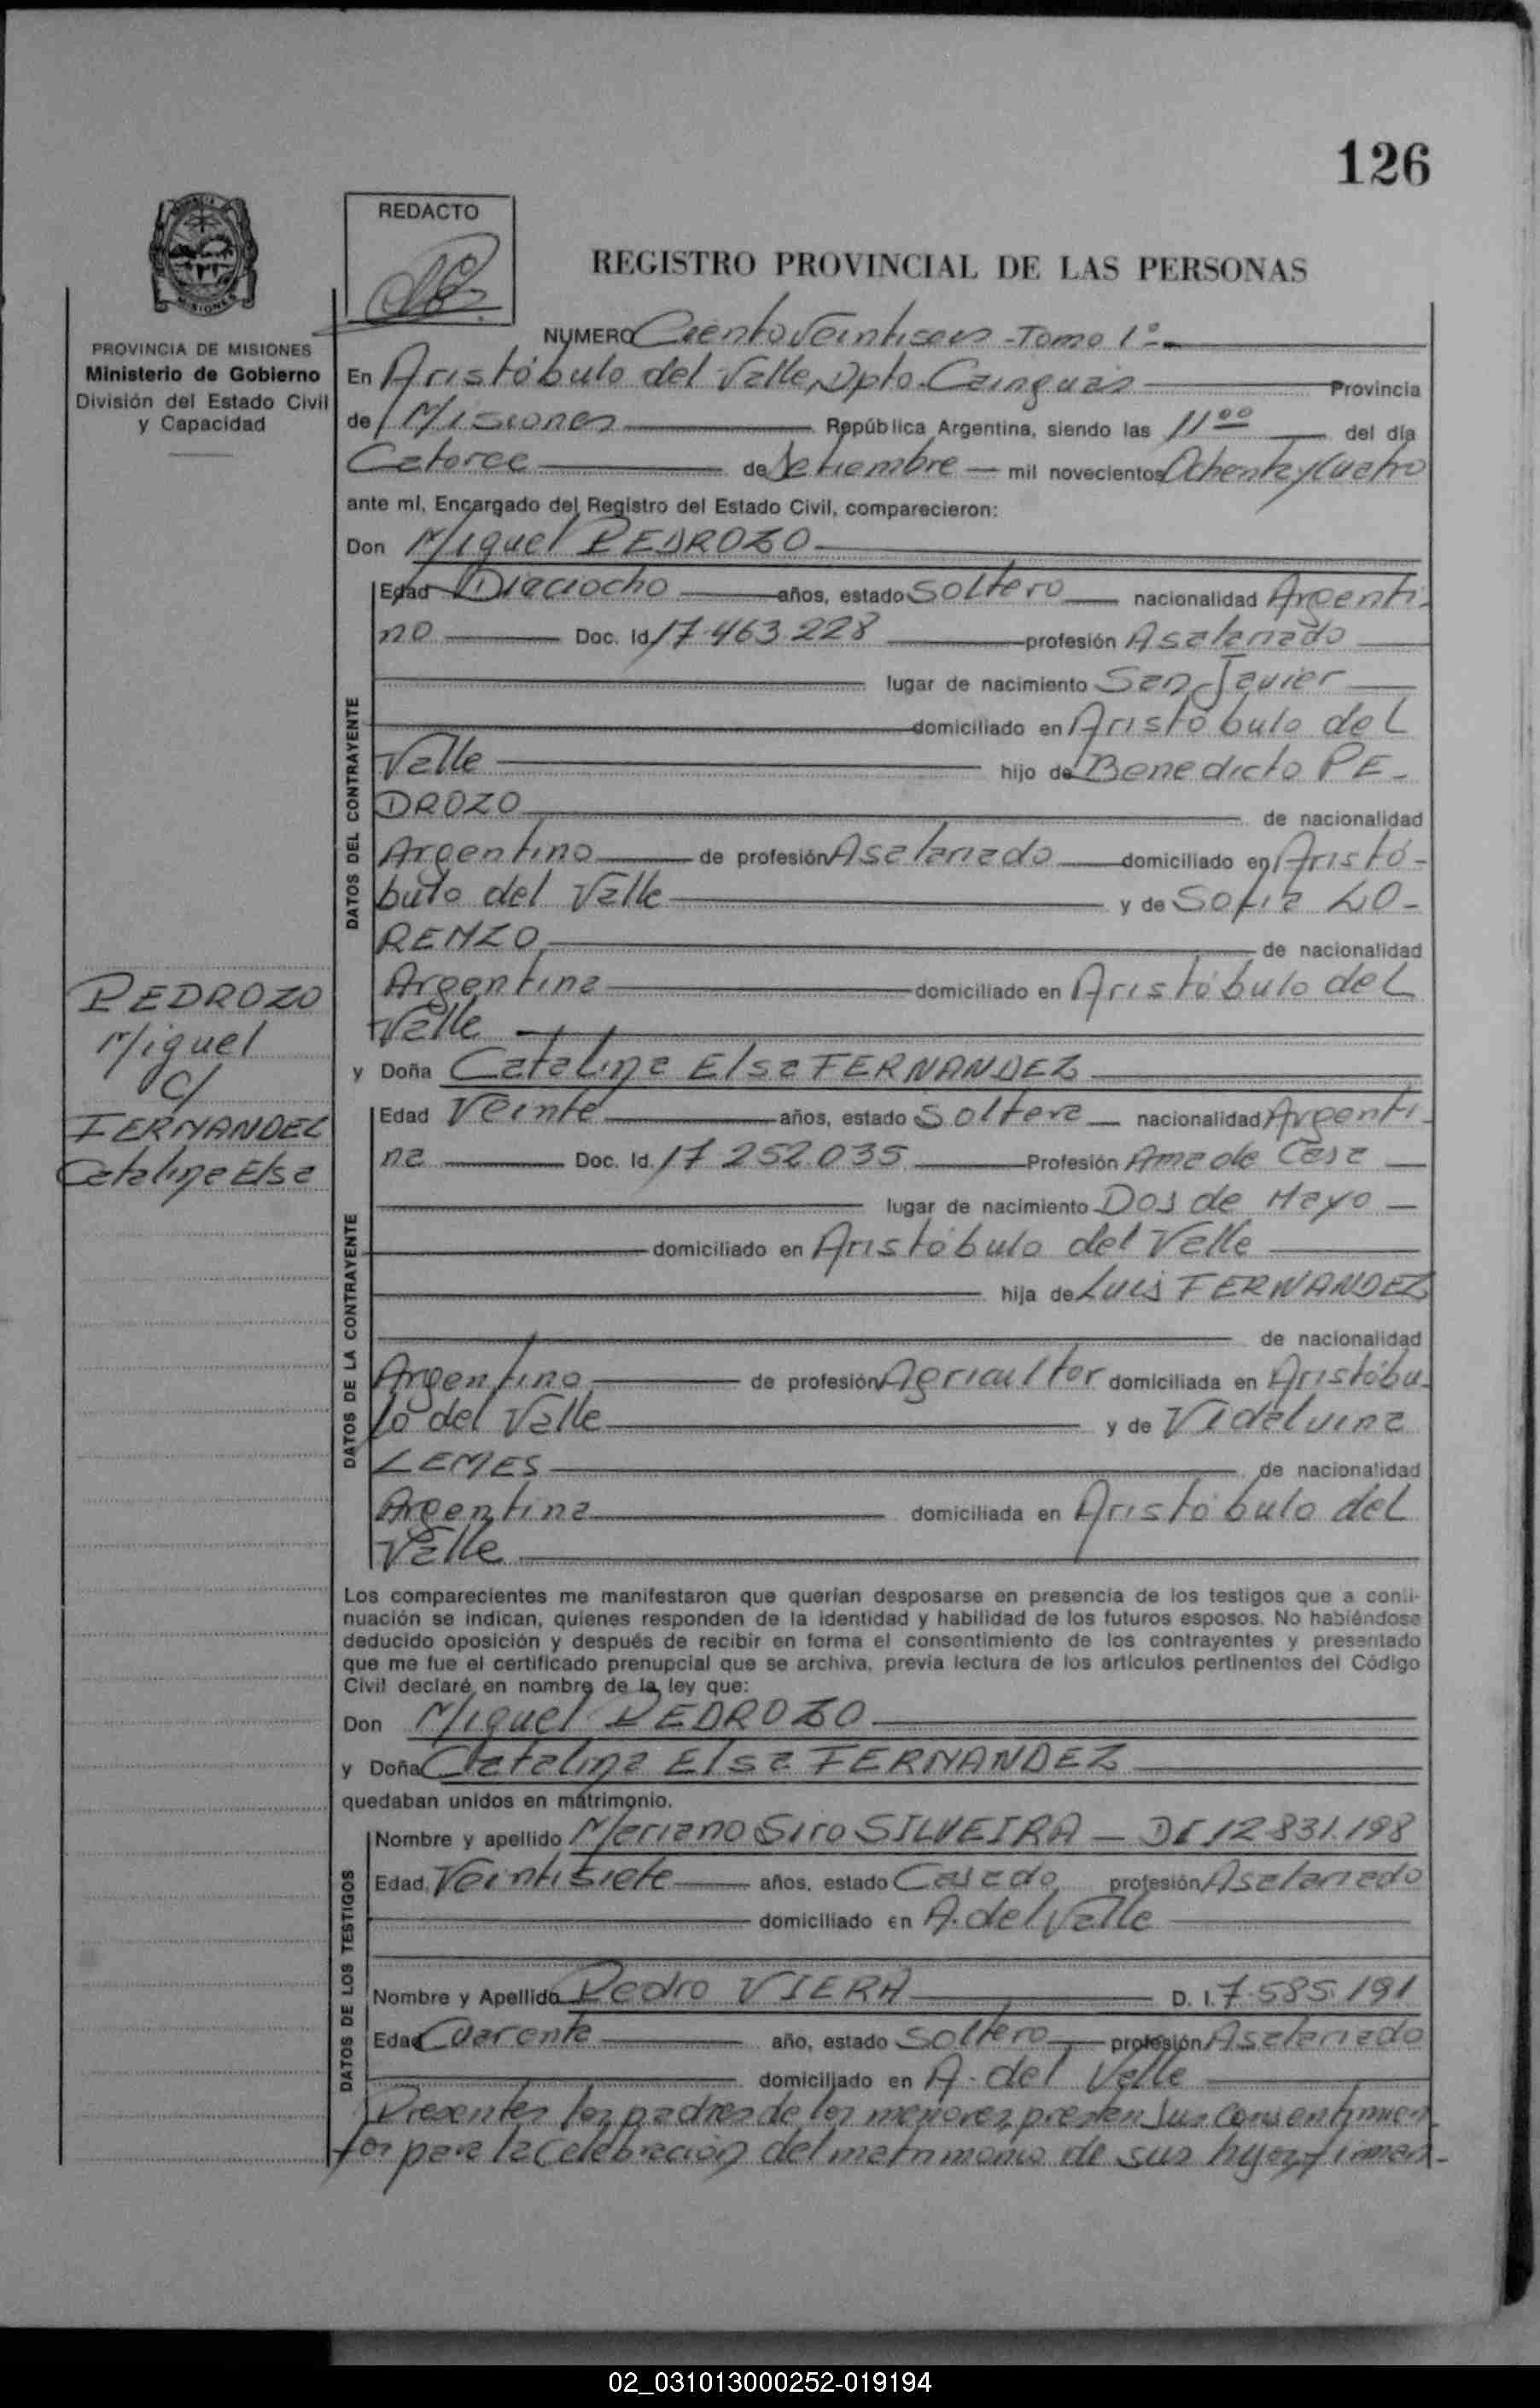 126
REDACTO
REGISTRO PROVINCIAL DE LAS PERSONAS
MISIONES
PROVINCIA DE MISIONES
Ministerio de Gobierno
División del Estado Civil
y Capacidad
NUMERO Ciento Veintiseis - Tomo 1º
En Aristóbulo del Valle, Dpto. Cainguás Provincia
de Misiones República Argentina, siendo las 11 00 del día
Catorce de Setiembre mil novecientos Ochenta y Cuatro
ante mí, Encargado del Registro del Estado Civil, comparecieron:
Don Miguel PEDROZO
DATOS DEL CONTRAYENTE
Edad Dieciocho años, estado Soltero nacionalidad Argenti-
no Doc. Id. 17.463.228 profesión Asalariado
lugar de nacimiento San Javier
domiciliado en Aristóbulo del
Valle hijo de Benedicto PE-
DROZO de nacionalidad
Argentino de profesión Asalariado domiciliado en Aristó-
bulo del Valle y de Sofia LO-
RENZO de nacionalidad
Argentina domiciliado en Aristóbulo del
Valle
PEDROZO
Miguel
c/
FERNANDEZ
Catalina Elsa
y Doña Catalina Elsa FERNANDEZ
DATOS DE LA CONTRAYENTE
Edad Veinte años, estado Soltera nacionalidad Argenti-
na Doc. Id. 17.252.035 Profesión Ama de Casa
lugar de nacimiento Dos de Mayo
domiciliado en Aristóbulo del Valle
hija de Luis FERNANDEZ
de nacionalidad
Argentino de profesión Agricultor domiciliada en Aristóbu-
lo del Valle y de Vidalvina
LEMES de nacionalidad
Argentina domiciliada en Aristóbulo del
Valle
Los comparecientes me manifestaron que querían desposarse en presencia de los testigos que a conti-
nuación se indican, quienes responden de la identidad y habilidad de los futuros esposos. No habiéndose
deducido oposición y después de recibir en forma el consentimiento de los contrayentes y presentado
que me fue el certificado prenupcial que se archiva, previa lectura de los artículos pertinentes del Código
Civil declaré en nombre de la ley que:
Don Miguel PEDROZO
y Doña Catalina Elsa FERNANDEZ
quedaban unidos en matrimonio.
DATOS DE LOS TESTIGOS
Nombre y apellido Mariano Siro SILVEIRA - DI 12.831.198
Edad Veintisiete años, estado Casado profesión Asalariado
domiciliado en A. del Valle
Nombre y Apellido Pedro VIERA D. I. 7.585.191
Edad Cuarenta año, estado Soltero profesión Asalariado
domiciliado en A. del Valle
Presentes los padres de los menores prestan sus consentimien-
tos para la celebración del matrimonio de sus hijos, firman-
02_031013000252-019194